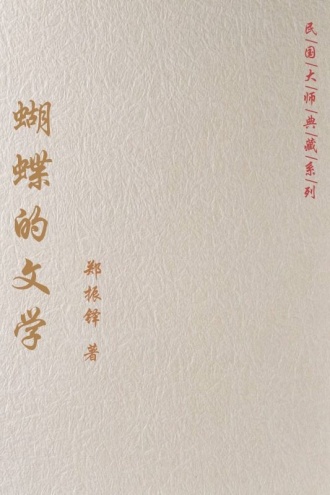 民|国|大|师|典|藏|系|列
蝴蝶的文学
郑振铎 著